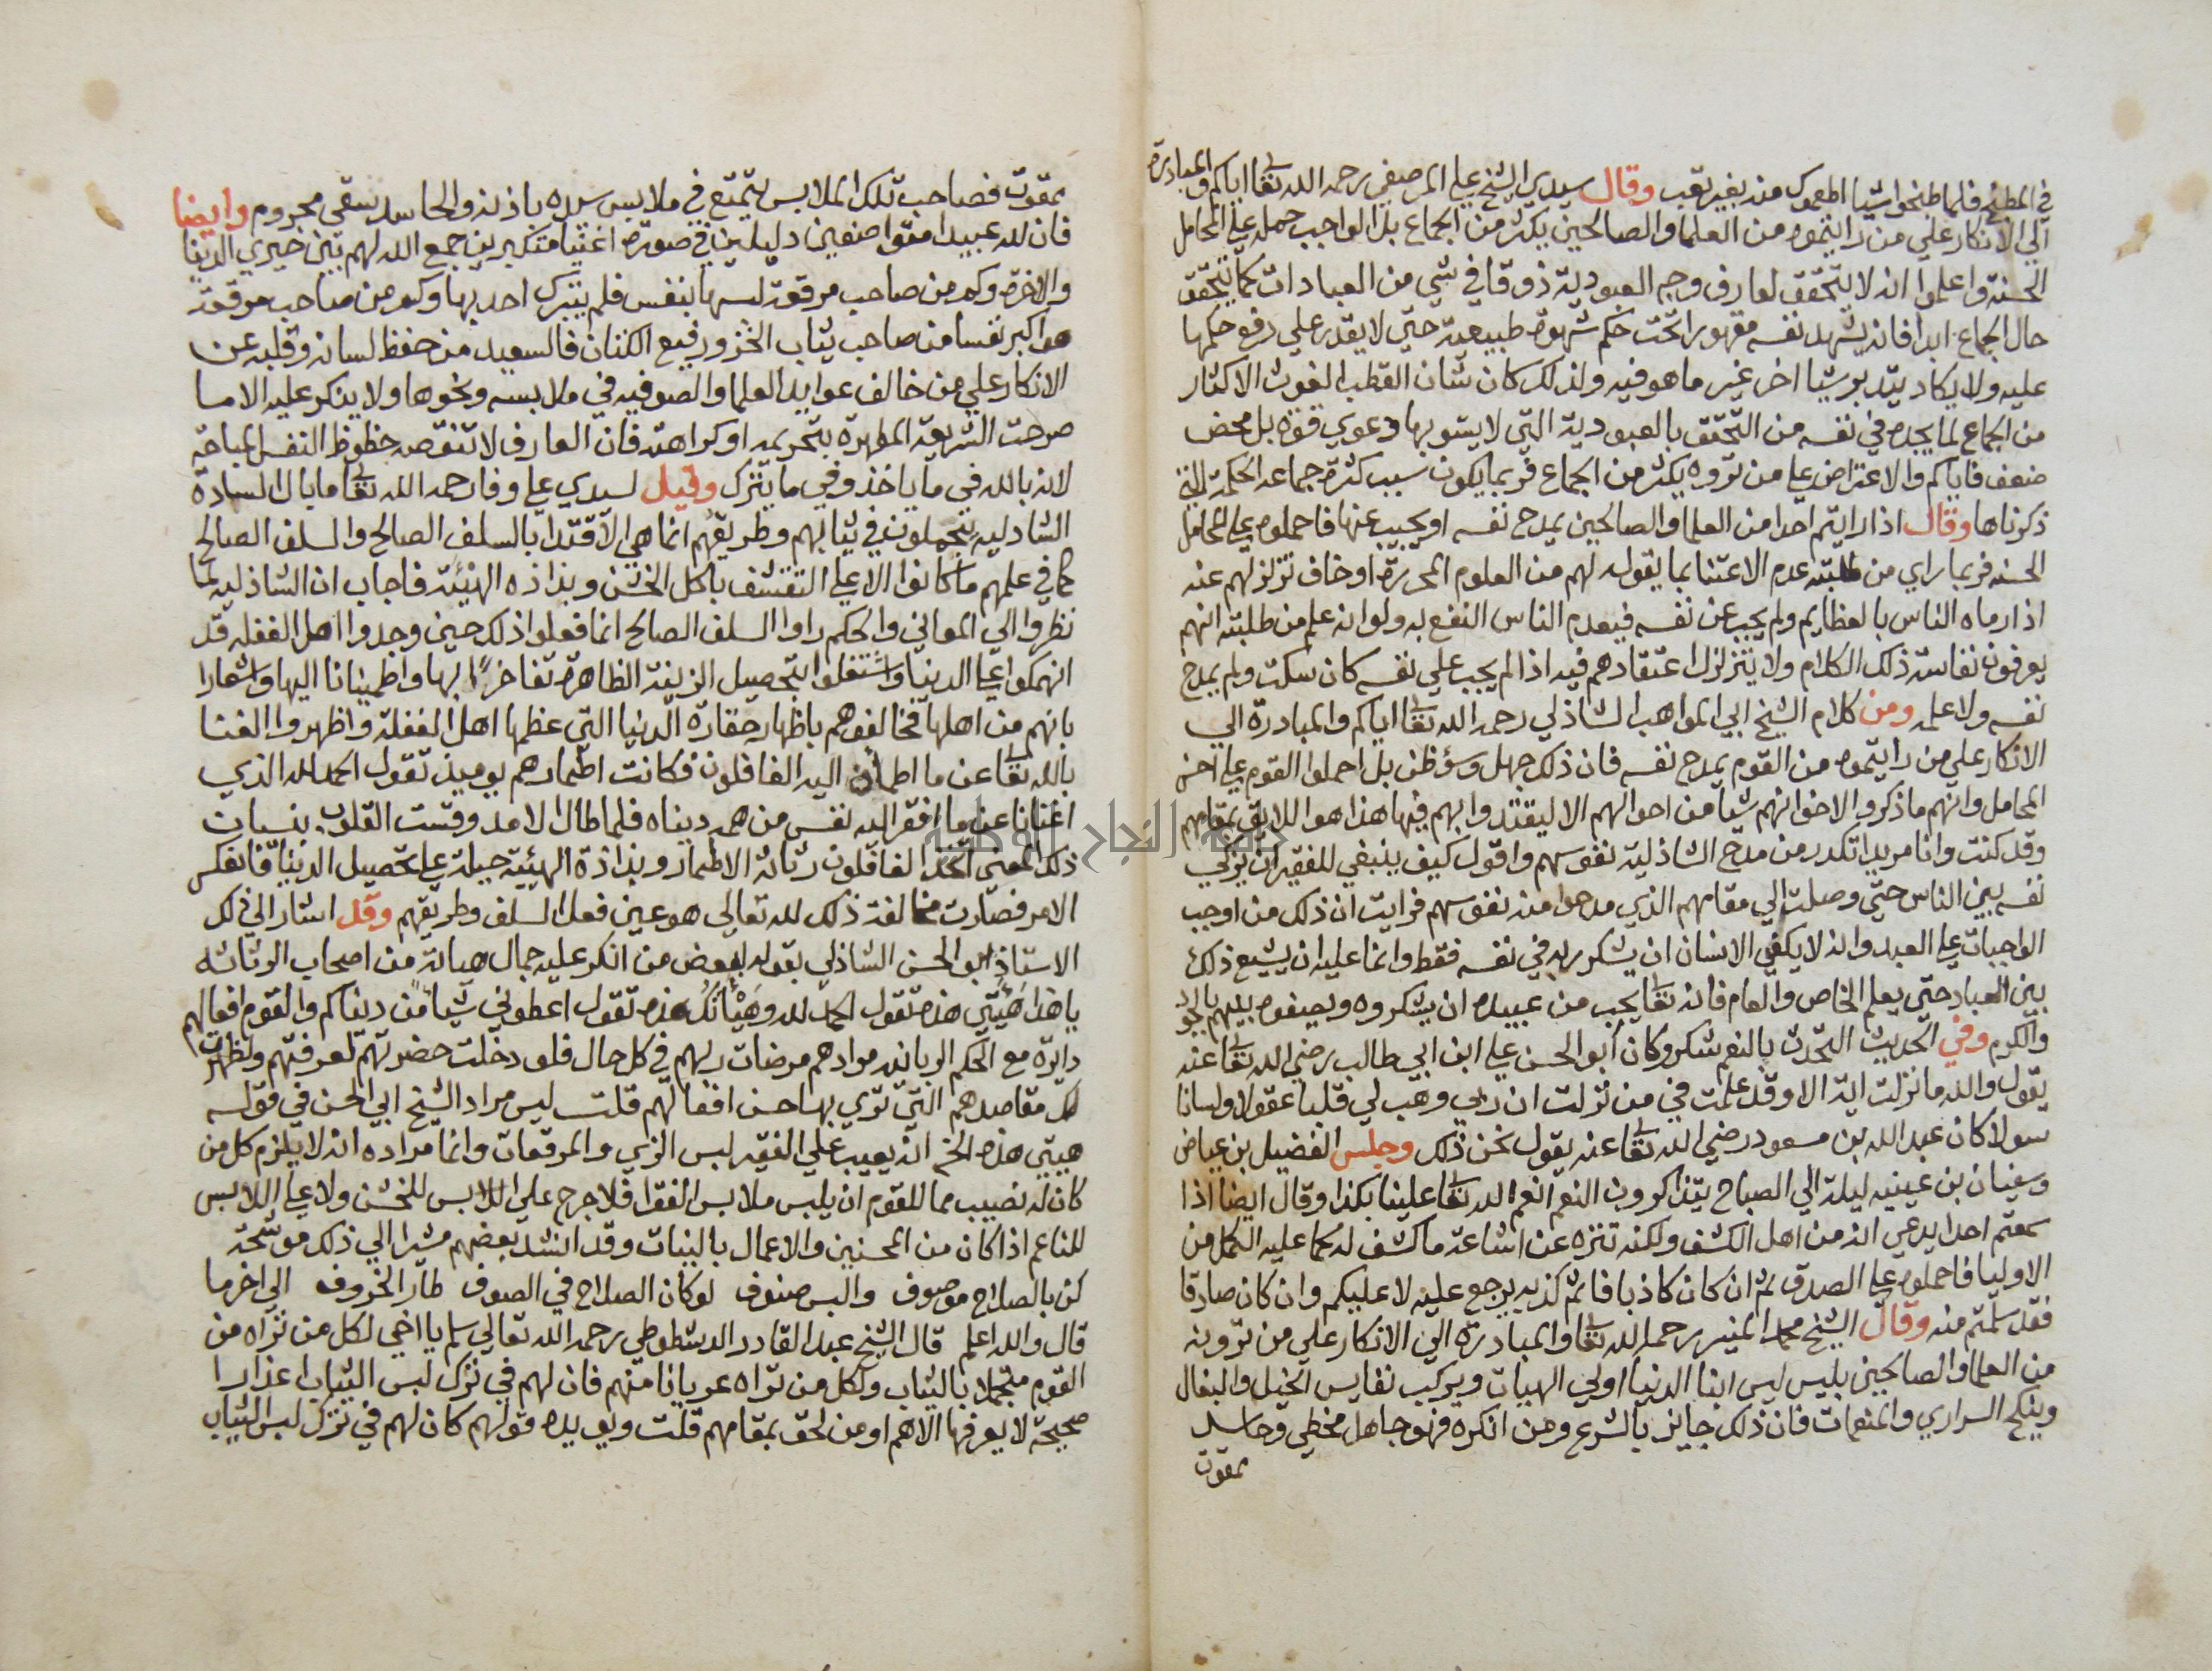 في المطبخ فلما طبخوا شيا اطعموك منه بغير تعب وقال سيدي الشيخ علي المرصفي رحمه الله تعا اياكم والمبادرة
الي الانكار علي من رايتموه من العلما والصالحين يكثر من الجماع بل الواجب حمله علي المحامل
الحسنة واعلموا انه لا يتحقق لعارف وجه العبودية ذوقا في شي من العبادات كما يتحقق
حال الجماع ابدا فانه يشهد نفسه مقهورا تحت حكم شهوة طبيعية حتي لا يقدر علي دفع حكمها
عليه ولا يكاد يتدبر شيا اخر غير ما هو فيه ولذلك كان شان القطب الغوث الاكثار
من الجماع لما يجده في نفسه من التحقق بالعبودية التي لا يشوبها دعوي قوة بل محض
ضعف فاياكم والاعتراض علي من تروه يكثر من الجماع فربما يكون سبب كثرة جماعه الحكمة التي
ذكرناها وقال اذا رايتم احدا من العلما والصالحين يمدح نفسه او يجيب عنها فاحملوه علي المحامل
الحسنه فربما راي من طلبته عدم الاعتنا بما يقوله لهم من العلوم المحررة او خاف تزلزلهم عنه
اذا رماه الناس بالعظايم ولم يجب عن نفسه فيعدم الناس النفع به ولو انه علم من طلبته انهم
يعرفون نفاسة ذلك الكلام ولا يتزلزل اعتقادهم فيه اذا لم يجب علي نفسه كان سكت ولم يمدح
نفسه ولا علمه ومن كلام الشيخ ابي المواهب الشاذلي رحمه الله تعا اياكم والمبادرة الي
الانكار علي من رايتموه من القوم يمدح نفسه فان ذلك جهل وسوظن بل احملوا القوم علي احسن
المحامل وانهم ما ذكروا لاخوانهم شيا من احوالهم الا ليقتدوا بهم فيها هذا هو اللايق بمقامهم
وقد كنت وانا مريد اتكدر من مدح الشاذلية نفوسهم واقول كيف ينبغي للفقير ان يزكي
نفسه بين الناس حتي وصلت الي مقامهم الذي مدحوا منه نفوسهم فرايت ان ذلك من اوجب
الواجبات علي العبد وانه لا يكفي الانسان ان يشكر ربه في نفسه فقط وانما عليه ان يشيع ذلك
بين العباد حتي يعلم الخاص والعام فانه تعا يحب من عبيده ان يشكروه ويصفوه بينهم بالجود
والكرم وفي الحديث التحدث بالنعم شكر وكان ابو الحسن علي ابن ابي طالب رضي الله تعا عنه
يقول والله ما نزلت اية الا وقد علمت في من نزلت ان ربي وهب لي قلبا عقولا ولسانا
سولا كان عبد الله بن مسعود رضي الله تعا عنه يقول نحن ذلك وجلس الفضيل بن عياض
وسفيان بن عيينه ليلة الي الصباح يتذاكرون النعم انعم الله تعا علينا بكذا وقال ايضا اذا
سمعتم احدا يدعي انه من اهل الكشف ولكنه تنزه عن اشاعة ما كشف له كما عليه الكمل من
الاوليا فاحملوه علي الصدق ثم ان كان كاذبا فاثم كذبه يرجع عليه لا عليكم وان كان صادقا
فقد سلمتم منه وقال الشيخ محمد المنير رحمه الله تعا والمبادرة الي الانكار علي من ترونه
من العلما والصالحين يلبس لبس ابنا الدنيا اولي الهيات ويركب نفايس الخيل والبغال
وينكح السراري والمنعمات فان ذلك جايز بالشرع ومن انكره فهو جاهل مخطي وحاسد
ممقوت
ممقوت فصاحب تلك الملابس يتمتع في ملابس سيده باذنه والحاسد شقي مجروم وايضا
فان لله عبيدا متواضعين دليلين في صورة اغنيا متكبرين جمع الله لهم بين خيري الدنيا
والاخرة وكم من صاحب مرقعة لبسها بنفس فلم يتبرك احد بها وكم من صاحب مرقعة
هو اكبر نفسا من صاحب ثياب الخز ورفيع الكتان فالسعيد من حفظ لسانه وقلبه عن
الانكار علي من خالف عوايد العلما والصوفيه في ملابسه ونحوها ولا ينكر عليه الا ما
صرحت الشريعة المطهرة بتحريمه او كراهته فان العارف لا تنقصه حظوظ النفس المباحة
لانه بالله في ما ياخذ وفي ما يترك وقيل لسيدي علي وفا رحمه الله تعا ما بال السادة
الشادليه يتجملون في ثيابهم وطريقهم انما هي الاقتدا بالسلف الصالح والسلف الصالح
كما في علمهم ما كانوا الا علي التقشف باكل الخشن وبذاذه الهيئة فاجاب ان الشاذليه لما
نظروا الي المعاني والحكم راوا السلف الصالح انما فعلوا ذلك حين وجدوا اهل الغفله قد
انهمكوا علي الدنيا واشتغلوا بتحصيل الزينة الظاهرة تفاخرًا بها واطمينانا اليها واشعارا
بانهم من اهلها فخالفوهم باظهار حقارة الدنيا التي عظمها اهل الغفلة واظهروا الغنا
بالله تعا عن ما اطمأن اليه الغافلون فكانت اطمارهم يوميذ تقول الحمد لله الذي
اغنانا عن ما افقر اليه نفس من همه ديناه فلما طال الامد وقست القلوب بنسيان
ذلك المعني اتخذ الغافلون رثاثة الاطمار وبذاذة الهيئة حيلة علي تحصيل الدنيا فانعكس
الامر فصارت مخالفة ذلك لله تعالي هو عين فعل السلف وطريقهم وقد اشار الي ذلك
الاستاذ ابو الحسن الشاذلي بقوله لبعض من انكر عليه جمال هياته من اصحاب الرثاثه
يا هذا هَيْئَتِي هذه تقول الحمد لله وَهَيْأَتُكَ هذه تقول اعطوني شيأ من ديناكم والقوم افعالهم
دايرة مع الحكم الربانيه مرادهم مرضات ربهم في كل حال فلو دخلت حضرتهم لعرفتهم ولظهرت
لك مقاصدهم التي تري بها حسن افعالهم قلت ليس مراد الشيخ ابي الحسن في قوله
هيتي هذه الخ انه يعيب علي الفقير لبس الزي والمرقعات وانما مراده انه لا يلزم كل من
كان له نصيب مما للقوم ان يلبس ملابس الفقرا فلا حرج علي اللابس للخشن ولا علي اللابس
للناعم اذا كان من المحسنين والاعمال بالنيات وقد انشد بعضهم مشيرا الي ذلك موشحة
كن بالصلاح موصوف والبس صنوف لو كان الصلاح في الصوف طار الخروف الي اخر ما
قال والله اعلم قال الشيخ عبد القادر الدشطوطي رحمه الله تعالي سلم يا اخي لكل من تراه من
القوم متجملا بالثياب ولكل من تراه عريانا منهم فان لهم في ترك لبس الثياب اعذارا
صحيحة لا يعرفها الا هم او من لحق بمقامهم قلت ويويده قولهم كان لهم في ترك لبس الثياب
جامعة النجاح الوطنية